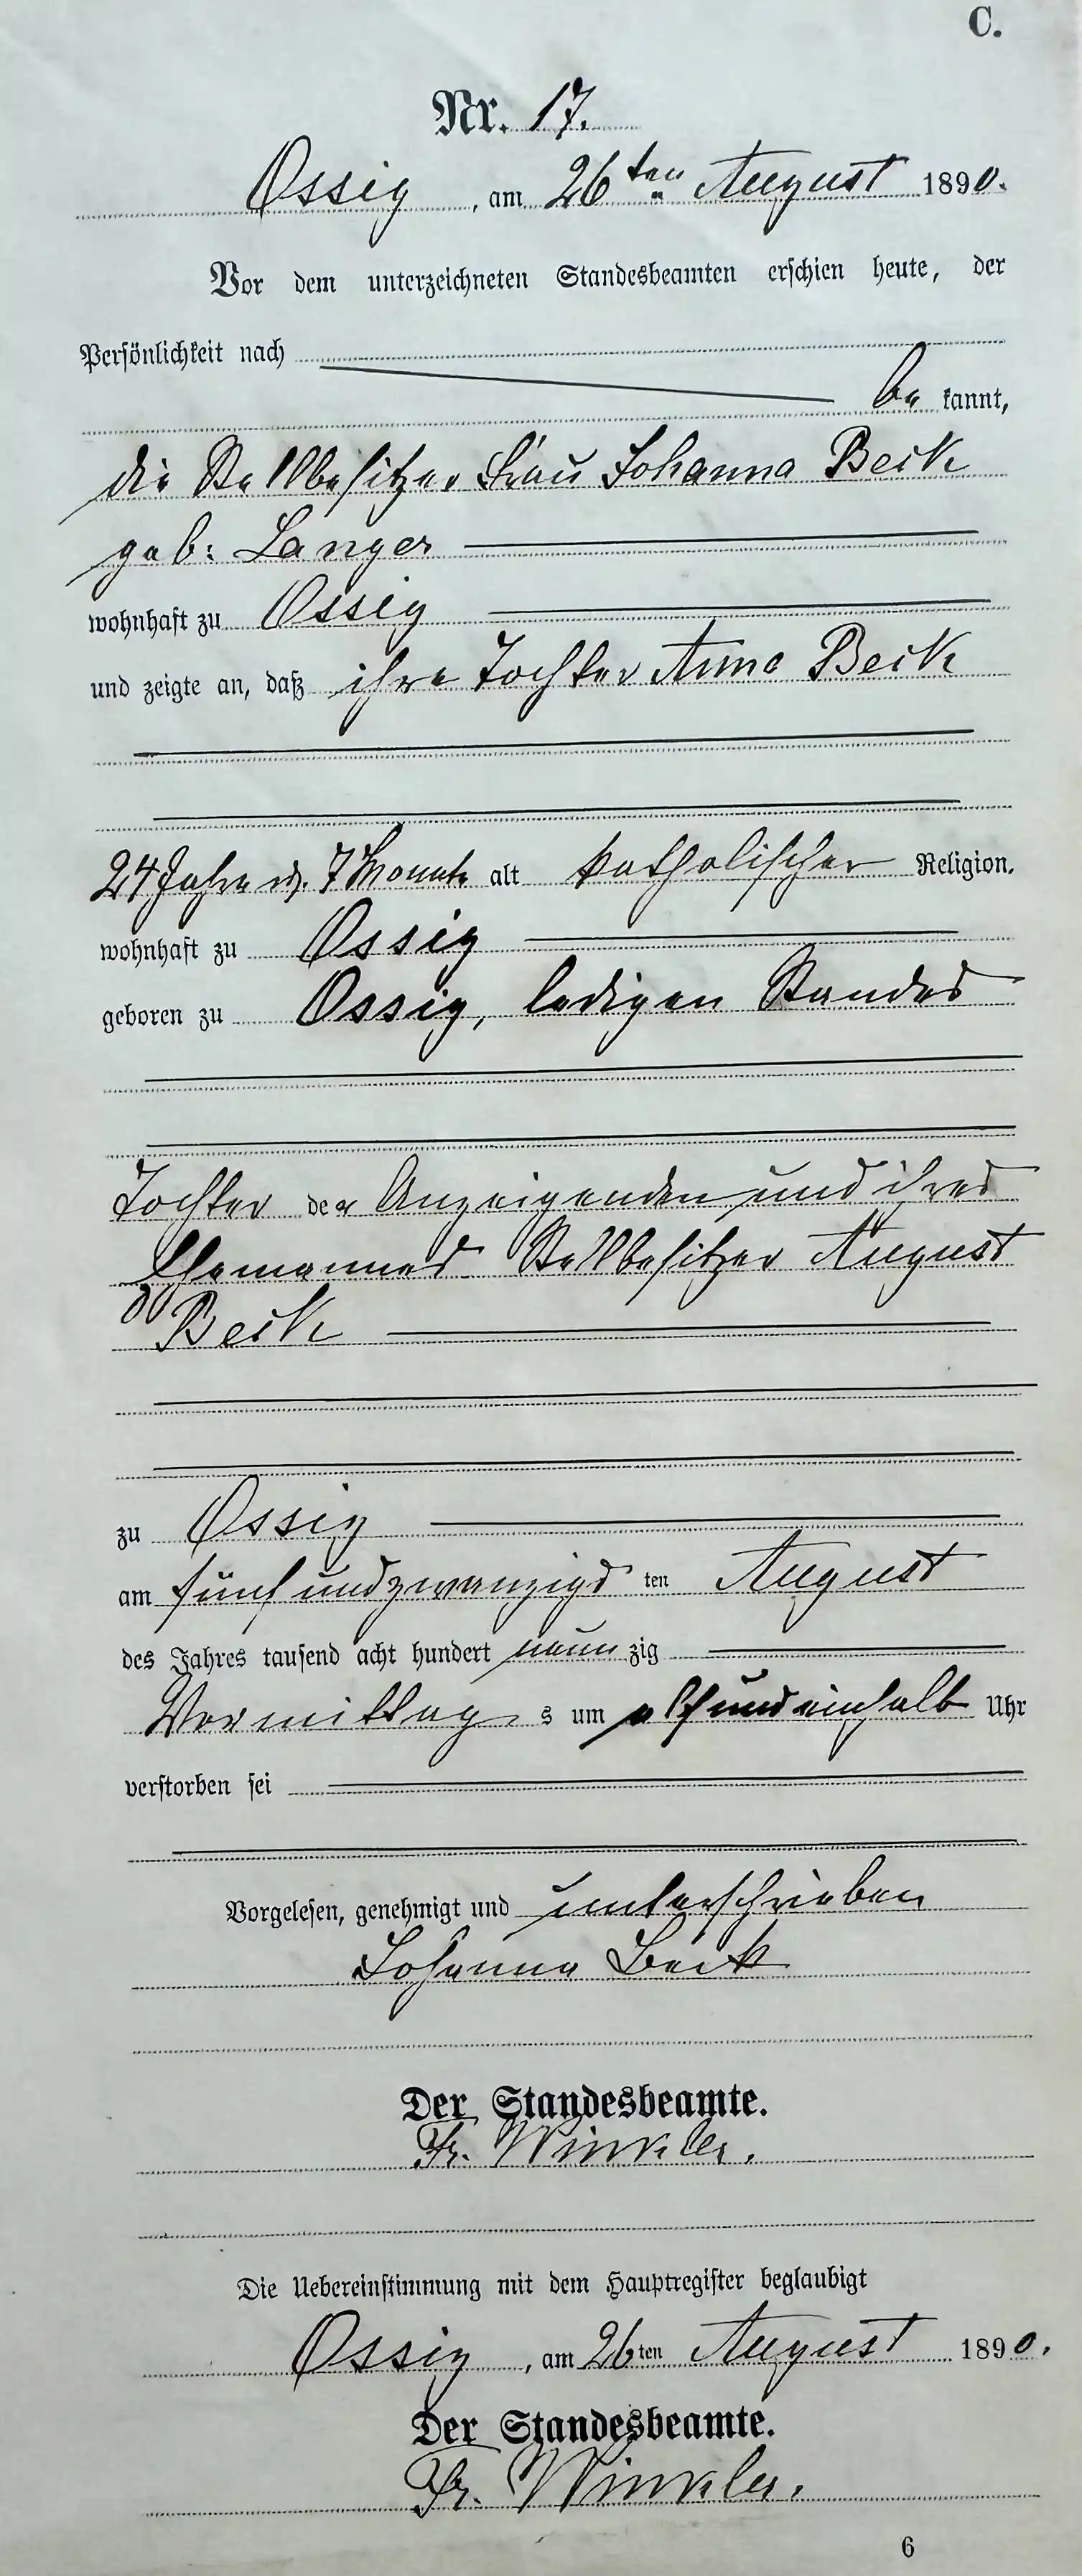 C.
Nr. 17.
Ossig, am 26ten August 1890.
Vor dem unterzeichneten Standesbeamten erschien heute, der
Persönlichkeit nach
be kannt,
die Stellbesitzer Frau Johanna Beck
geb: Langer
wohnhaft zu Ossig
und zeigte an, daß ihre Tochter Anna Beck
24 Jahre u. 7 Monate alt katholischer Religion,
wohnhaft zu Ossig
geboren zu Ossig, ledigen Standes
Tochter der Anzeigenden und ihres
Ehemannes Stellbesitzer August
Beck
zu Ossig
am fünfundzwanzigsten August
des Jahres tausend acht hundert neun zig
Vormittag s um elfundeinhalb Uhr
verstorben sei
Vorgelesen, genehmigt und unterschrieben
Johanna Beck
Der Standesbeamte.
Fr. Winkler.
Die Uebereinstimmung mit dem Hauptregister beglaubigt
Ossig, am 26ten August 1890.
Der Standesbeamte.
Fr. Winkler.
6